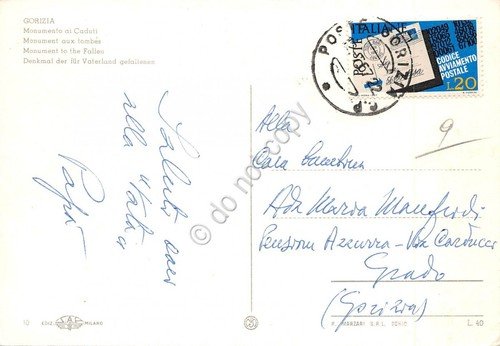 GORIZIA
Monumento ai Caduti
Monument aux tombés
Monument to the Fallen
Denkmal der für Vaterland gefallenen
Saluti cari
alla
Papà
POSTE ITALIANE
CODICE
AVVIAMENTO
POSTALE
L.20
POSTE GORIZIA
9
Alla
Cara bambina
Ada Maria Manfredi
Pensione Azzurra - Via Carducci
Grado
(Gorizia)
do not copy
10 EDIZ. S.A.F. MILANO
L. 40